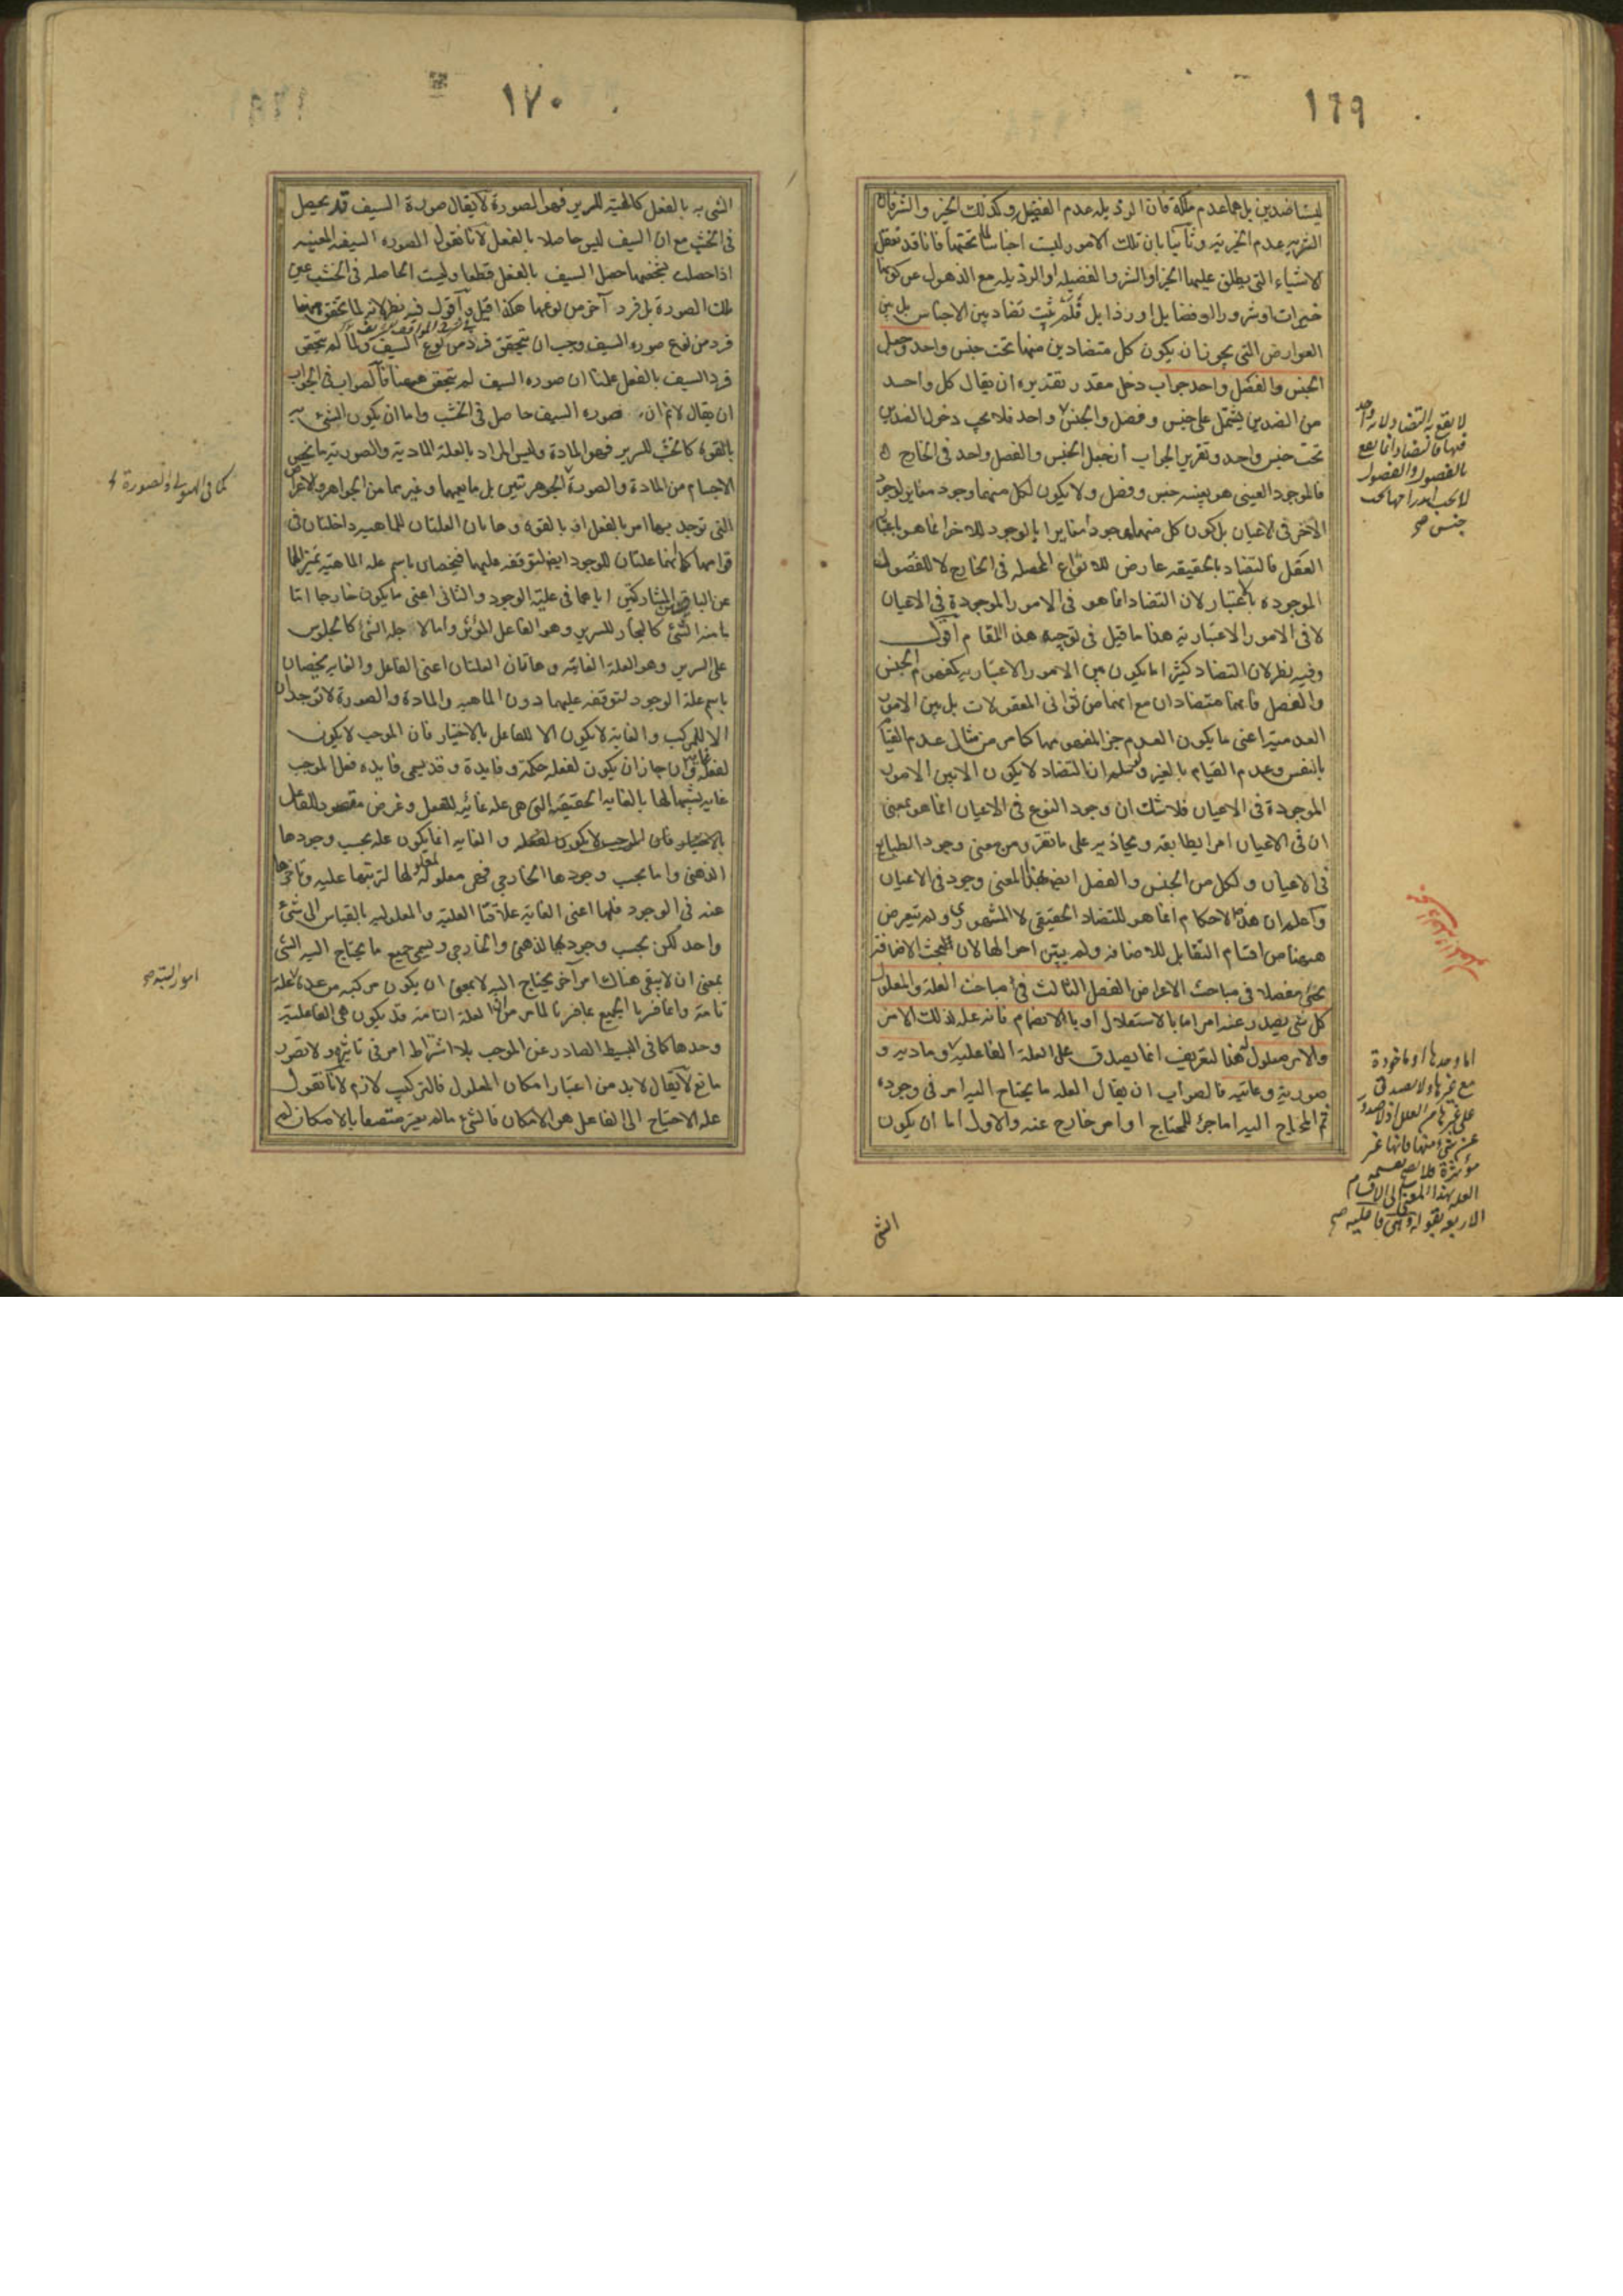 ١٦٩
ليسا ضدين بل هما عدم ملكة فان الرذيلة عدم الفضيلة وكذلك الخير والشر فان
الشرية عدم الخيرية وثانيا بان تلك الامور ليست اجناسا لما تحتها فانا قد نعقل
الاشياء التى يطلق عليها الخير او الشر والفضيلة او الرذيلة مع الذهول عن كونها
خيرات او شرور او فضايل او رذايل فلم يثبت تضاد بين الاجناس بل بين
العوارض التى يجوز ان يكون كل متضادين منها تحت جنس واحد وجعل
الجنس والفصل واحد جواب دخل مقدر تقديره ان يقال كل واحد
من الضدين يشتمل على جنس وفصل والجنس واحد فلا يجب دخول الضدين
تحت جنس واحد وتقرير الجواب ان جعل الجنس والفصل واحد فى الخارج
فالموجود العينى هو بعينه جنس وفصل ولا يكون لكل منهما وجود مغاير لوجود
الآخر فى الاعيان بل كون كل منهما موجودا مغايرا بالوجود للآخر انما هو باعتبار
العقل فالتضاد بالحقيقة عارض للانواع المحصلة فى الخارج لا للفصول
الموجودة باعتبار لان التضاد انما هو فى الامور الموجودة فى الاعيان
لا فى الامور الاعتبارية هذا ما قيل فى توجيه هذا المقام اقول
وفيه نظر لان التضاد كثيرا ما يكون بين الامور الاعتبارية كمفهوم الجنس
والفصل فانهما متضادان مع انهما من ثوانى المعقولات بل بين الامور
العدمية اعنى ما يكون العدم جزء لمفهومها كما مر من مثال عدم القيام
بالنفس وعدم القيام بالغير ولو سلم ان التضاد لا يكون الا بين الامور
الموجودة فى الاعيان فلا شك ان وجود النوع فى الاعيان انما هو بمعنى
ان فى الاعيان امرا يطابقه ويحاذيه على ما تقرر من معنى وجود الطبايع
فى الاعيان ولكل من الجنس والفصل ايضا بهذا المعنى وجود فى الاعيان
واعلم ان هذه الاحكام انما هو للتضاد الحقيقى لا المشهورى ولم يتعرض
ههنا من اقسام التقابل للاضافة ولم يبين احوالها لان مبحث الاضافة
يجئ مفصلا فى مباحث الاعراض الفصل الثالث فى مباحث العلة والمعلول
كل شئ يصدر عنه امر اما بالاستقلال او بالانضمام فانه علة لذلك الامر
والامر معلول له هذا التعريف انما يصدق على العلة الفاعلية ومادية و
صورية وغائية فالصواب ان يقال العلة ما يحتاج اليه امر فى وجوده
ثم المحتاج اليه اما جزء للمحتاج او امر خارج عنه والاول اما ان يكون
الشئ
لا يقع به التضاد
فيها فالتضاد انما يقع
بالفصول والفصول
لا يجب اندراجها تحت
جنس صح
اما وحدها او مأخوذة
مع غيرها ولا يصدق
على غيرها من العلل اذ لا يصدر
عن شئ منها فانها غير
مؤثرة فلا يصح تقسيم
العلة بهذا المعنى الى الاقسام
الاربعة بقوله وهى فاعلية صح
١٧٠
الشئ به بالفعل كالهيئة للسرير فهو الصورة لا يقال صورة السيف قد يحصل
فى الخشب مع ان السيف ليس حاصلا بالفعل لانا نقول الصورة السيفية المعينة
اذا حصلت بشخصها حصل السيف بالفعل قطعا وليست الحاصلة فى الخشب عين
تلك الصورة بل فرد آخر من نوعها هكذا قيل واقول فيه نظر لانه لما تحقق ههنا
فرد من نوع صورة السيف وجب ان يتحقق فرد من نوع السيف ولما لم يتحقق
فرد السيف بالفعل علمنا ان صورة السيف لم يتحقق ههنا فالصواب فى الجواب
ان يقال لا نم ان صورة السيف حاصل فى الخشب واما ان يكون الشئ به
بالقوة كالخشب للسرير فهو المادة وليس المراد بالعلة المادية والصورية ما يختص
الاجسام من المادة والصورة الجوهريتين بل ما يعمها وغيرهما من الجواهر والاعراض
التى توجد بها امر بالفعل او بالقوة وهاتان العلتان للماهية داخلتان فى
قوامها كما انهما علتان للوجود ايضا لتوقفه عليهما فيختصان باسم علة الماهية تميزا لهما
عن الباقيتين المشاركتين اياهما فى علية الوجود والثانى اعنى ما يكون خارجا اما
ما منه الشئ كالنجار للسرير وهو الفاعل المؤثر واما لاجله الشئ كالجلوس
على السرير وهو العلة الغائية وهاتان العلتان اعنى الفاعل والغاية يختصان
باسم علة الوجود لتوقفه عليهما دون الماهية والمادة والصورة لا توجدان
الا للمركب والغاية لا يكون الا للفاعل بالاختيار فان الموجب لا يكون
لفعله غاية وان جاز ان يكون لفعله حكمة وفايدة وقد يسمى فايدة فعل الموجب
غاية تشبيها لها بالغاية الحقيقية التى هى علة غائية للفعل وغرض مقصود للفاعل
بالاختيار فان الموجب لا يكون لفعله والغاية انما يكون علة بحسب وجودها
الذهنى واما بحسب وجودها الخارجى فهى معلولة لمعلولها لترتبها عليه وتاخرها
عنه فى الوجود فلها اعنى الغاية علاقتا العلية والمعلولية بالقياس الى شئ
واحد لكن بحسب وجوديها الذهنى والخارجى ويسمى جميع ما يحتاج اليه الشئ
بمعنى ان لا يبقى هناك امر آخر يحتاج اليه لا بمعنى ان يكون مركبة من عدة علة
تامة وانما فسرنا الجميع بما فسرنا لما مر من ان العلة التامة قد يكون هى الفاعلية
وحدها كما فى البسيط الصادر عن الموجب بلا اشتراط امر فى تاثيره ولا تصور
مانع لا يقال لا بد من اعتبار امكان المعلول فالتركيب لازم لانا نقول
علة الاحتياج الى الفاعل هو الامكان فالشئ ما لم يعتبر متصفا بالامكان لم
كما فى الهيولى والصورة
امور البتة صح